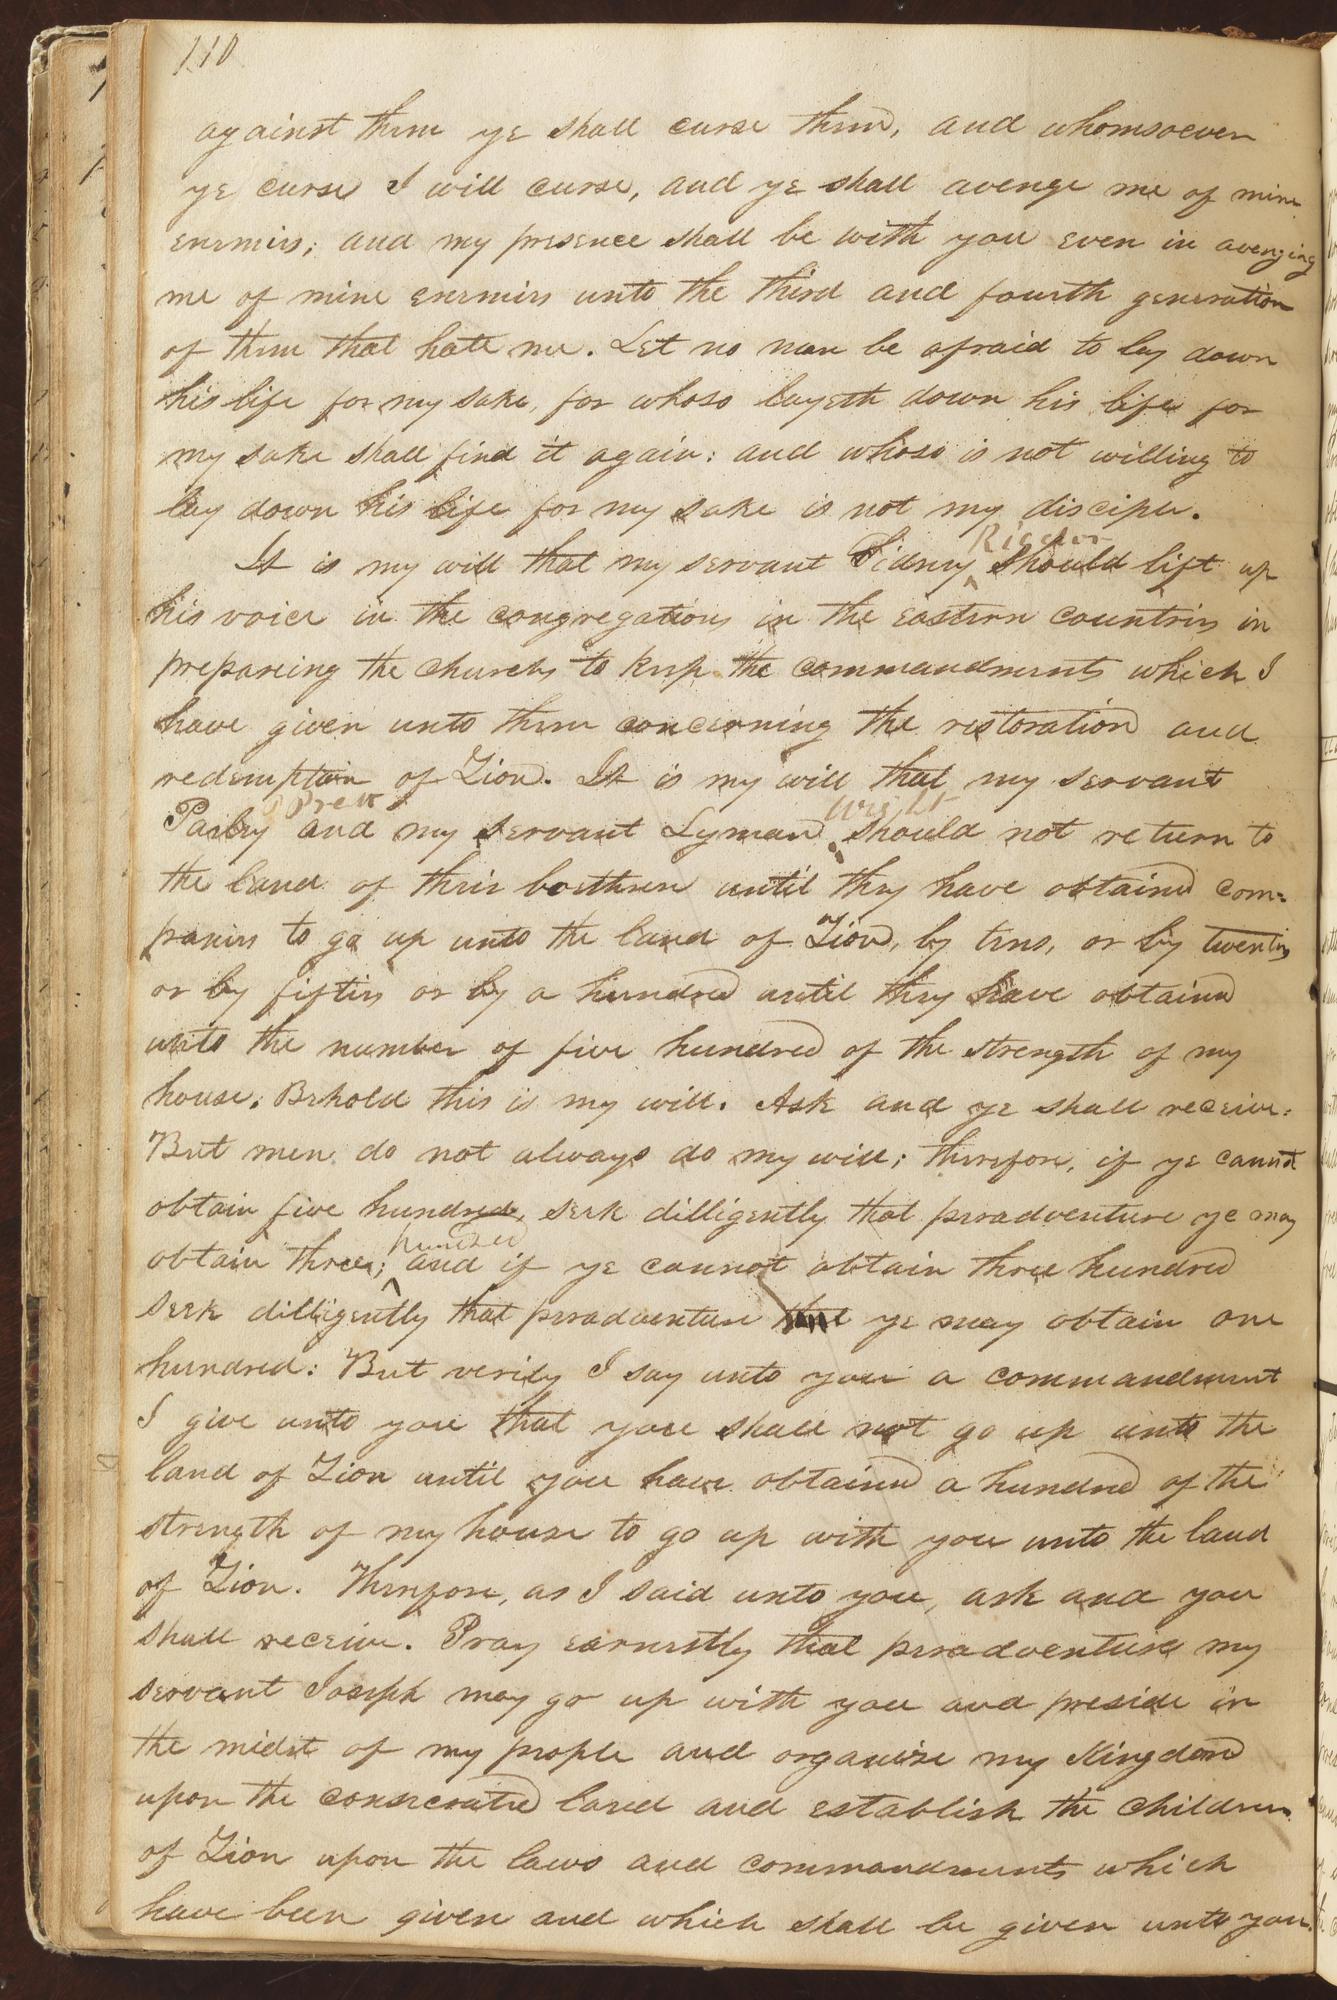 110
against them ye shall curse them, and whomsoever
ye curse I will curse, and ye shall avenge me of mine
enemies; and my presence shall be with you even in avenging
me of mine enemies unto the third and fourth generation
of them that hate me. Let no man be afraid to lay down
his life for my sake, for whoso layeth down his life for
my sake shall find it again: and whoso is not willing to
lay down his life for my sake is not my disciple.
Rigdon
It is my will that my servant Sidney should lift up
his voice in the congregations in the eastern countries in
prepareing the churches to keep the commandments which I
have given unto them concerning the restoration and
redemption of Zion. It is my will that my servant
P Pratt Wight
Parley and my servant Lyman should not return to
the land of their brethren until they have obtained com=
panies to go up unto the land of Zion, by tens, or by twenties
or by fifties or by a hundred until they have obtained
unto the number of five hundred of the strength of my
house. Behold this is my will. Ask and ye shall receive:
But men do not always do my will; therefore, if ye cannot
obtain five hundred, seek dilligently that peradventure ye may
hundred
obtain three; and if ye cannot obtain three hundred
seek dilligently that peradventure that ye may obtain one
hundred: But verily I say unto you a commandment
I give unto you that you shall not go up unto the
land of Zion until you have obtained a hundred of the
strength of my house to go up with you unto the land
of Zion. Therefore, as I said unto you, ask and you
shall receive. Pray earnestly that peradventure my
servant Joseph may go up with you and preside in
the midst of my people and organize my Kingdom
upon the consecrated land and establish the children
of Zion upon the laws and commandments which
have been given and which shall be given unto you.